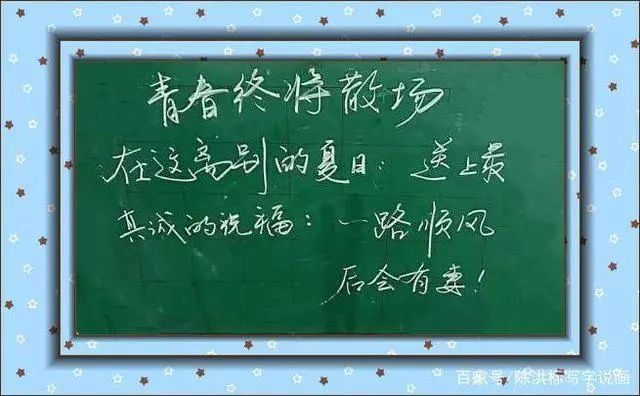 青春终将散场
在这离别的夏日：送上最
真诚的祝福：一路顺风
后会有妻！
百家号/陈洪标写字说画